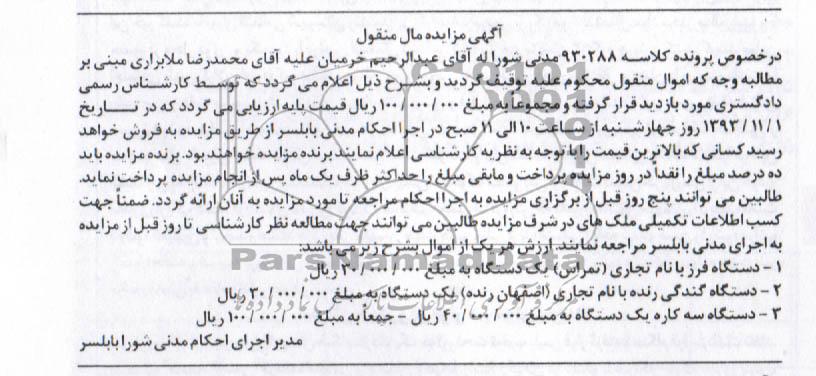 آگهی مزایده مال منقول
درخصوص پرونده کلاسه ۹۳۰۲۸۸ مدنی شورا له آقای عبدالرحیم خرمیان علیه آقای محمدرضا ملابراری مبنی بر
مطالبه وجه که اموال منقول محکوم علیه توقیف گردید و بشرح ذیل اعلام می گردد که توسط کارشناس رسمی
دادگستری مورد بازدید قرار گرفته و مجموعا به مبلغ ۱۰۰/۰۰۰/۰۰۰ ریال قیمت پایه ارزیابی می گردد که در تاریخ
۱۳۹۳/۱۱/۱ روز چهارشنبه از ساعت ۱۰ الی ۱۱ صبح در اجرا احکام مدنی بابلسر از طریق مزایده به فروش خواهد
رسید کسانی که بالاترین قیمت را با توجه به نظریه کارشناسی اعلام نمایند برنده مزایده خواهند بود. برنده مزایده باید
ده درصد مبلغ را نقداً در روز مزایده پرداخت و مابقی مبلغ را حداکثر ظرف یک ماه پس از انجام مزایده پرداخت نماید.
طالبین می توانند پنج روز قبل از برگزاری مزایده به اجرا احکام مراجعه تا مورد مزایده به آنان ارائه گردد. ضمناً جهت
کسب اطلاعات تکمیلی ملک های در شرف مزایده طالبین می توانند جهت مطالعه نظر کارشناسی تا روز قبل از مزایده
به اجرای مدنی بابلسر مراجعه نمایند. ارزش هر یک از اموال بشرح زیر می باشد:
ParsNamadData
۱ - دستگاه فرز با نام تجاری (تمراس) یک دستگاه به مبلغ ۳۰/۰۰۰/۰۰۰ ریال
۲ - دستگاه گندگی رنده با نام تجاری (اصفهان رنده) یک دستگاه به مبلغ ۳۰/۰۰۰/۰۰۰ ریال
۳ - دستگاه سه کاره یک دستگاه به مبلغ ۴۰/۰۰۰/۰۰۰ ریال - جمعاً به مبلغ ۱۰۰/۰۰۰/۰۰۰ ریال
مدیر اجرای احکام مدنی شورا بابلسر